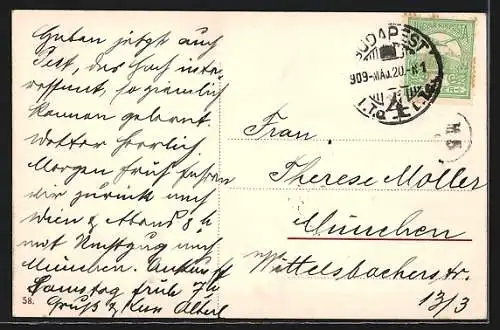 Haben jetzt auch
Pest, das hoch inte-
ressant, so ziemlich
kennen gelernt.
Wetter herrlich
Morgen früh fahren
wir zurück nach
Wien & Abend 8 h
mit Nachtzug nach
München. Ankunft
Samstag früh 7 h
Gruß & Kuss
58.
BUDAPEST
909-MÁJ.20.
4
Frau
Therese Moller
München
Wittelsbacherstr.
13/3